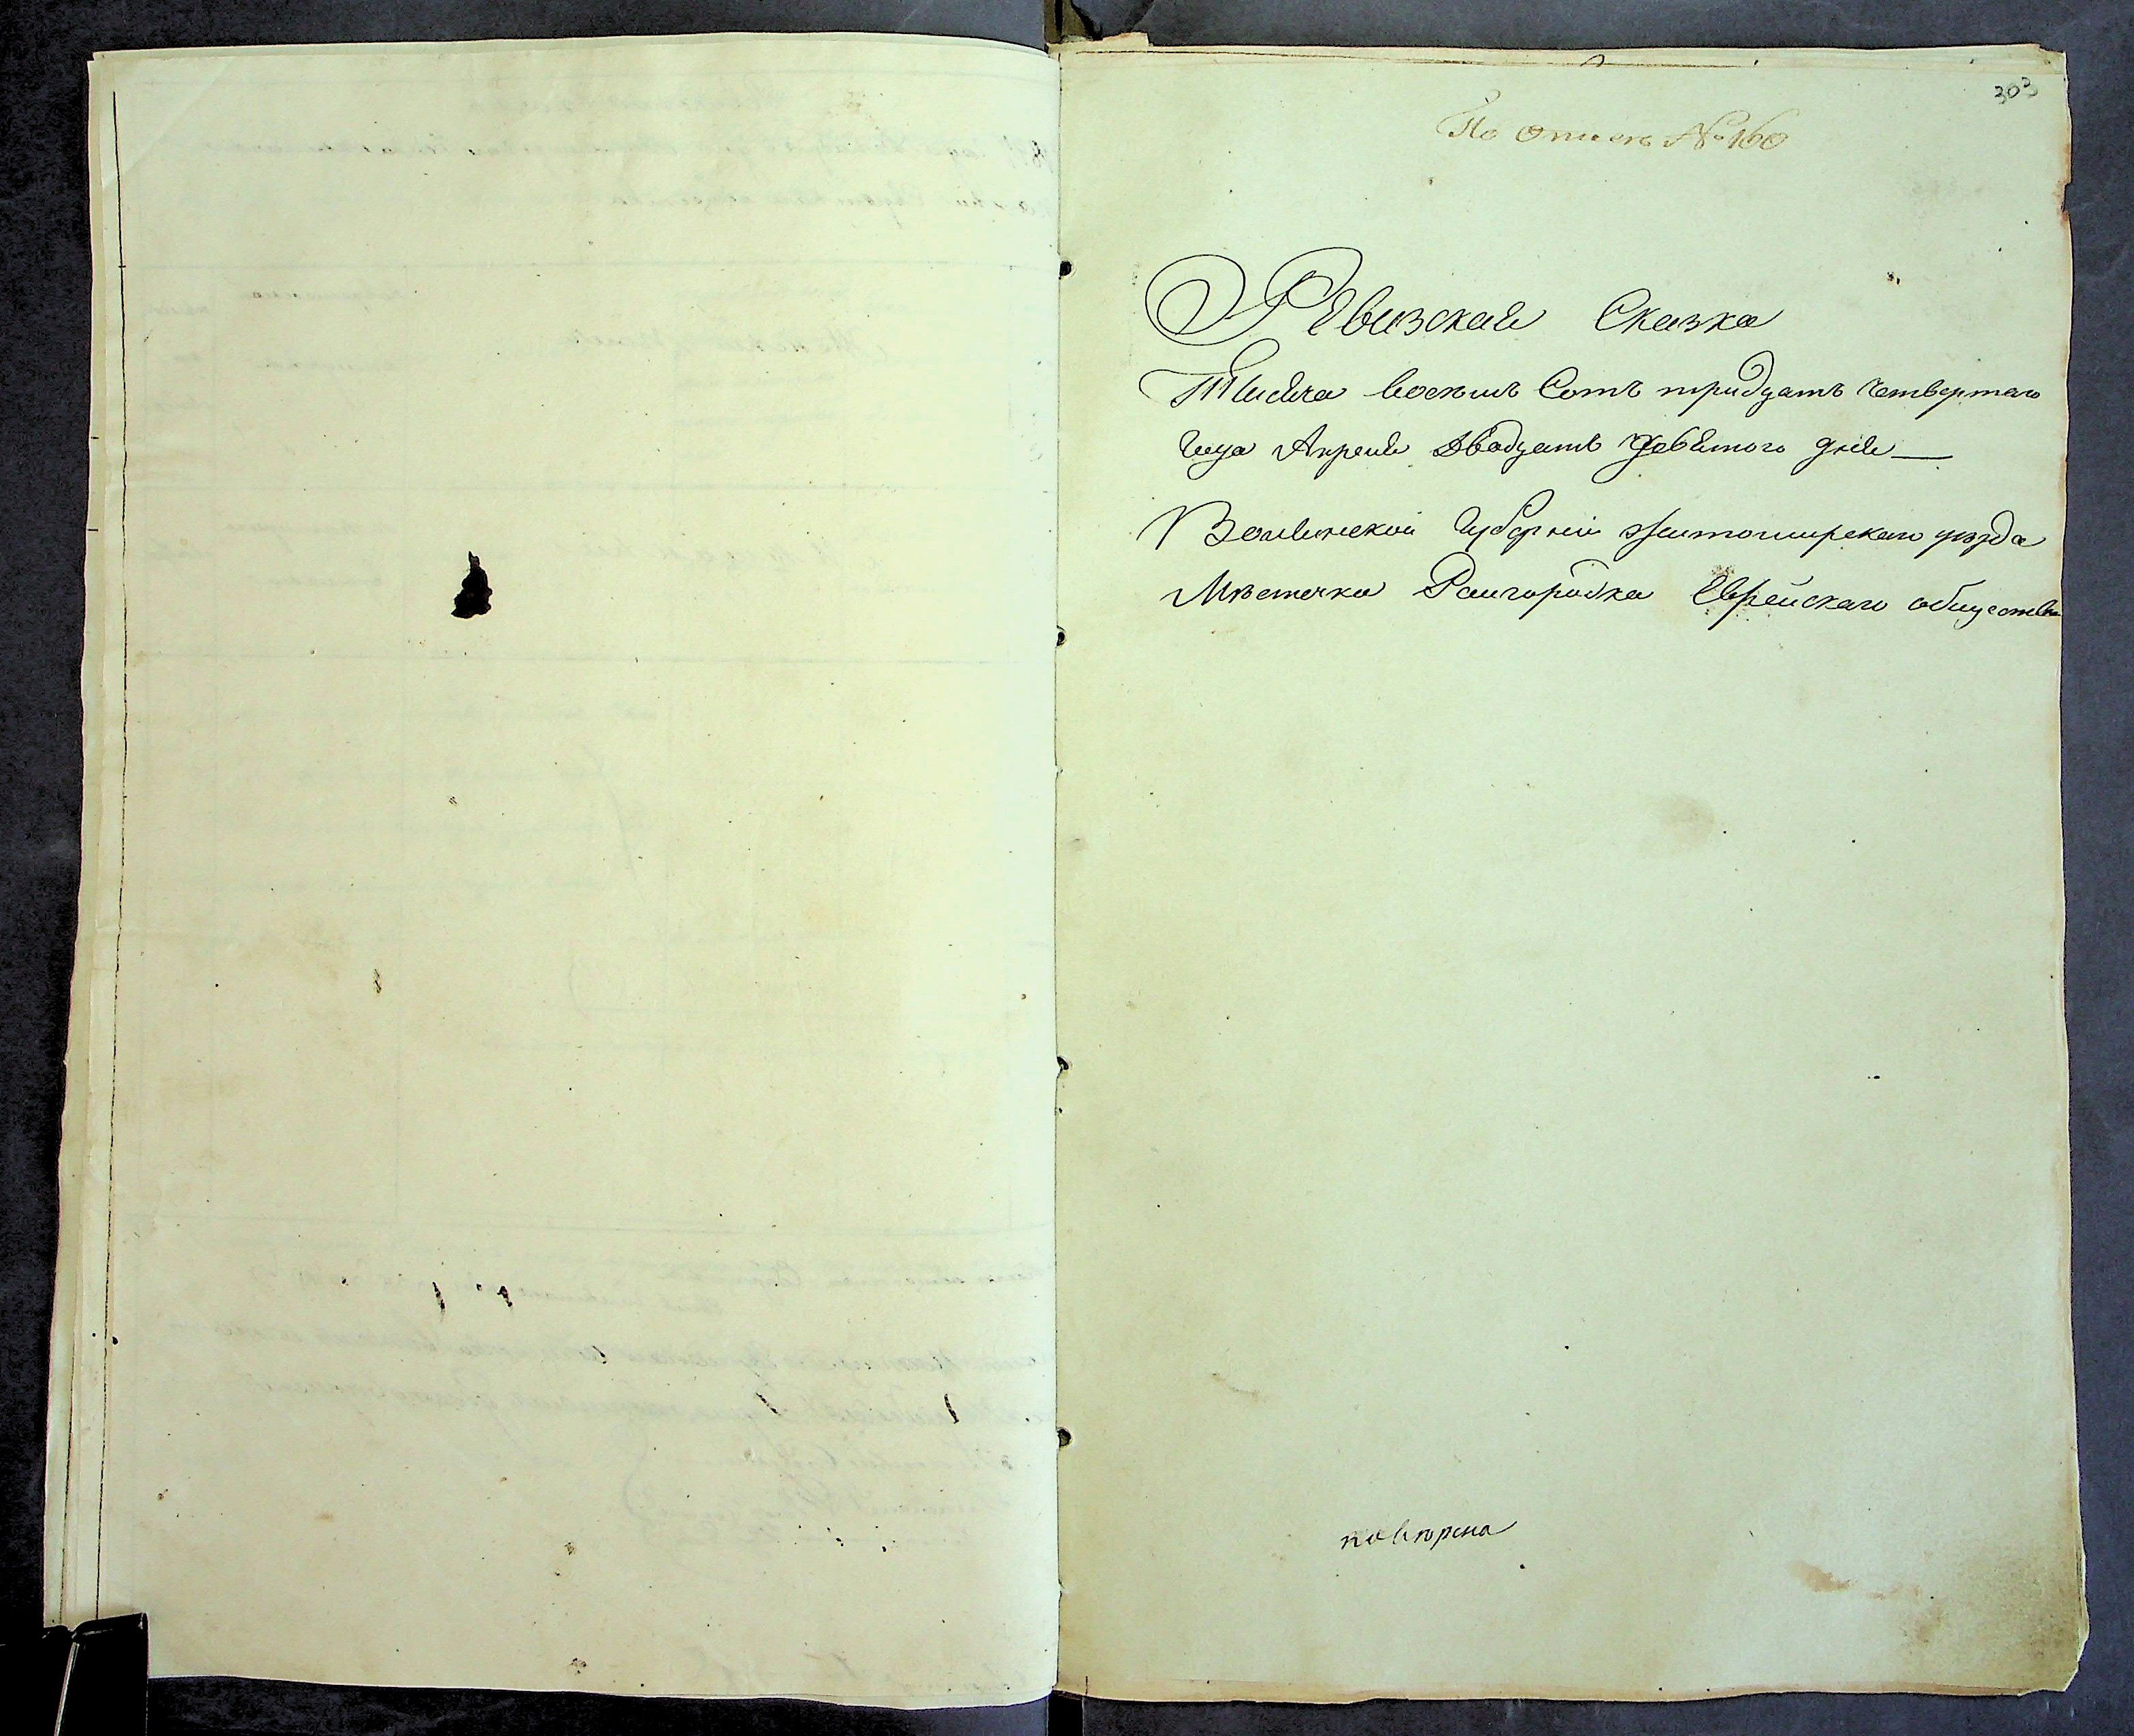 303
По описи № 160
Ревизская Сказка
Тысяча восемь Сотъ тридцать четвертаго
года Апреля двадцать девятого дня —
Волынской Губернии Житомирскаго уезда
Мѣстечка Райгородка Еврейскаго общества
поверена